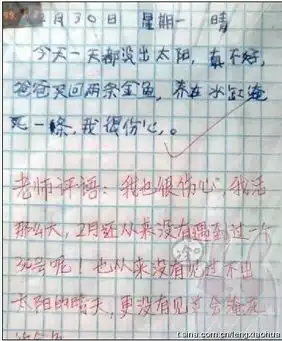 2月30日 星期一 晴
今天一天都没出太阳，真不好，
爸爸买回两条金鱼，养在水缸淹
死一條，我很伤心，。
老师评语：我也很伤心，我活
那么大，2月还从来没有遇到过一个
30号呢！也从来没有见过不出
太阳的晴天，更没有见过会淹死
tsina.com.cn/lengxiaohua